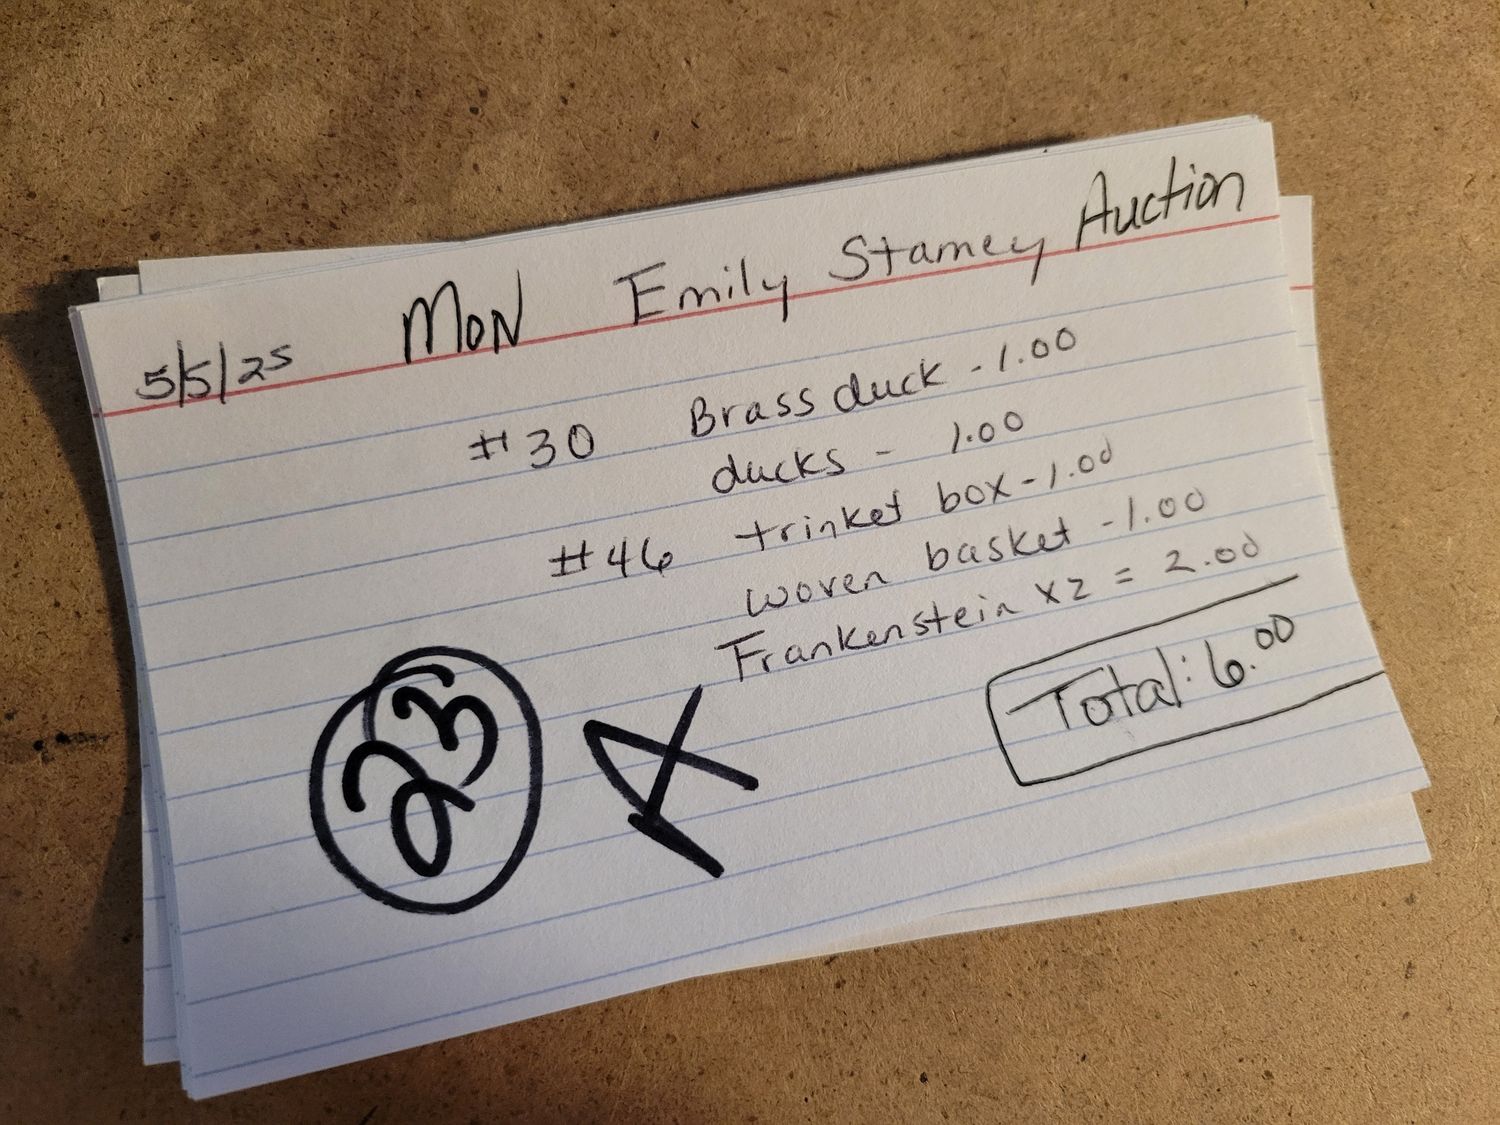 5/5/25 MON Emily Stamey Auction
#30 Brass duck - 1.00
ducks - 1.00
#46 trinket box - 1.00
woven basket - 1.00
Frankenstein x2 = 2.00
Total: 6.00
23 A